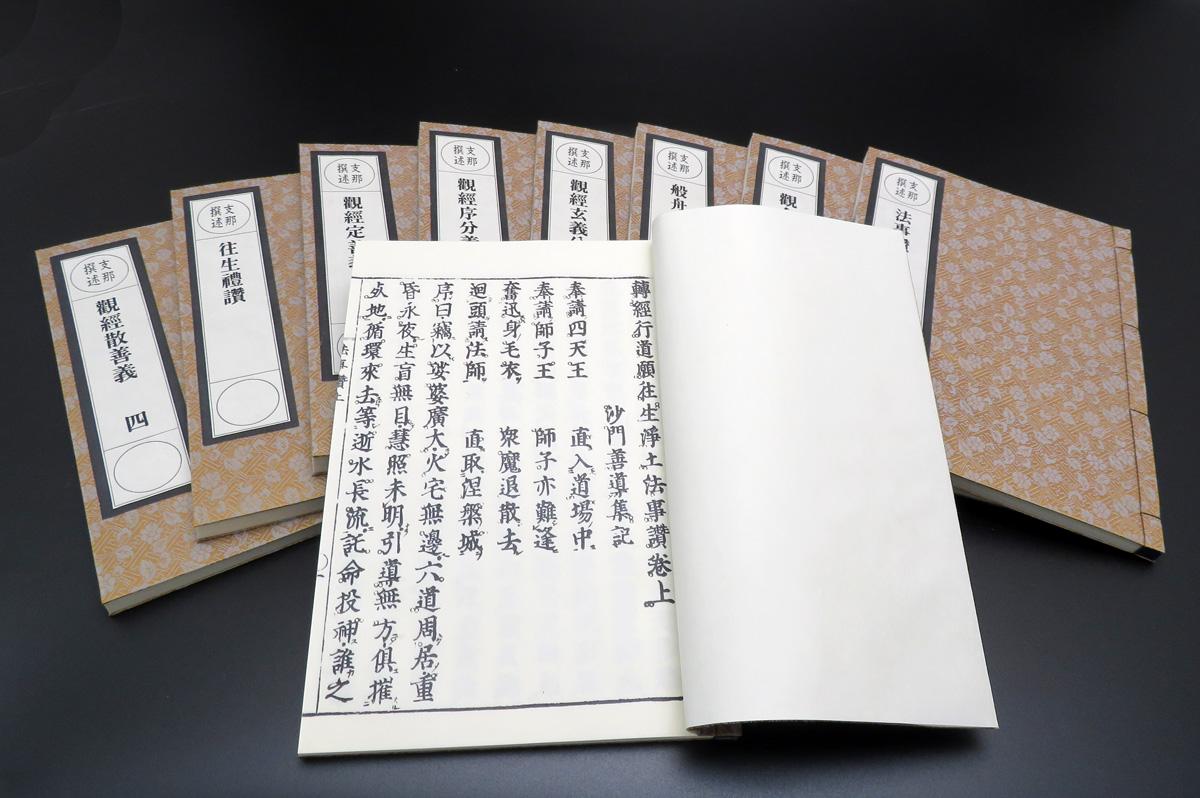 支那
撰述
觀經散善義 四
支那
撰述
往生禮讚
支那
撰述
觀經定善
支那
撰述
觀經序分義
支那
撰述
觀經玄義分
支那
撰述
般舟
支那
撰述
觀
支那
撰述
法事讚
轉經行道願往生淨土法事讚卷上
沙門善導集記
奉請四天王 直入道場中
奉請師子王 師子亦難逢
奮迅身毛衣 衆魔退散去
迴頭請法師 直取涅槃城
序曰竊以娑婆廣大火宅無邊六道周居重
昏永夜生盲無目慧照未明引導無方俱摧
死地循環來去等逝水長流託命投神誰之
法事讚上